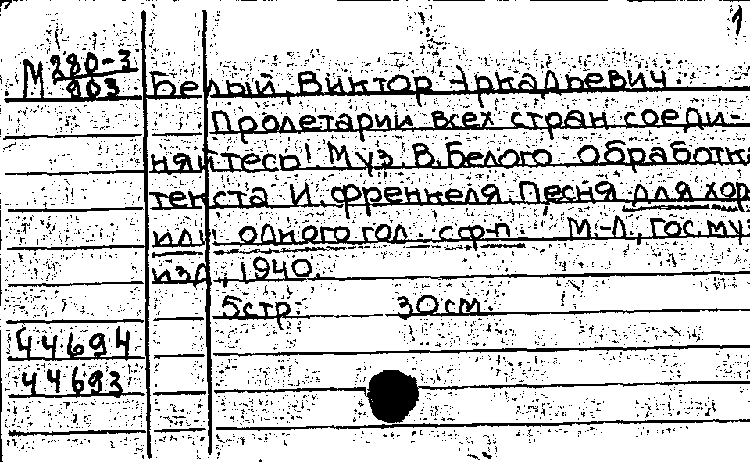 1
М 280-3
803
Белый, Виктор Аркадьевич.
Пролетарии всех стран соеди-
няйтесь! Муз. В. Белого Обработка
текста И. Френкеля. Песня для хор
или одного гол. с ф-п. М.-Л., Гос. му
изд, 1940.
5 стр. 30 см.
44694
44693